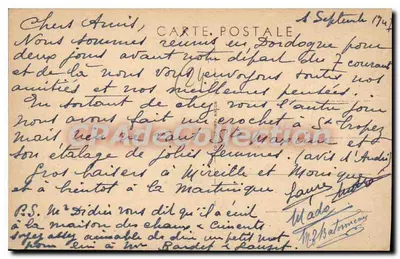 1 Septembre 1947
Chers Amis,
CARTE POSTALE
Nous sommes réunis en Dordogne pour
deux jours avant notre départ du 7 courant
et de là nous vous envoyons toutes nos
amitiés et nos meilleures pensées.
En sortant de chez vous l'autre jour
nous avons fait un crochet à St Tropez
mais rien ne vaut St Maxime et
son étalage de jolies femmes. (avis d'André)
Gros baisers à Mireille et Monique
et à bientôt à la Martinique
Mado
P.S. Mr Didier vous dit qu'il a écrit
à la maison des chaux & ciments
soyez assez aimable de dire un petit mot
pour lui à Mr